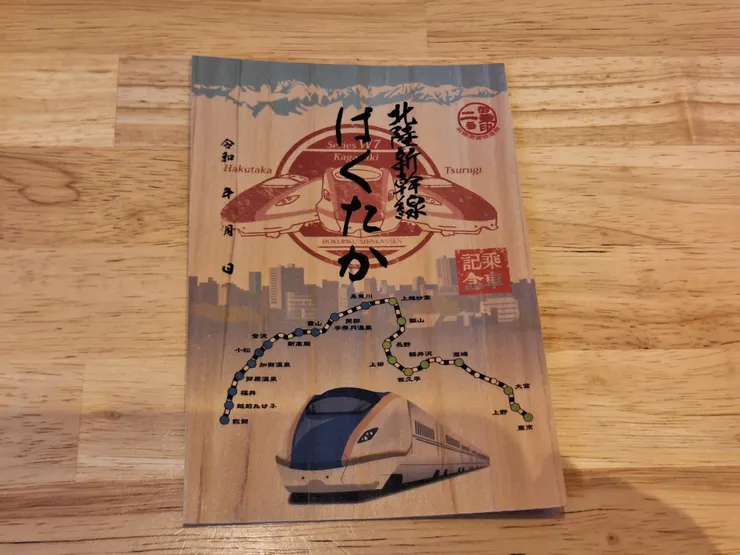 北陸新幹線
はくたか
令和 年 月 日
二番
Series W7
Kagayaki
Hakutaka
Tsurugi
HOKURIKU SHINKANSEN
乗車
記念
糸魚川
上越妙高
黒部
宇奈月温泉
飯山
富山
新高岡
長野
金沢
小松
軽井沢
高崎
加賀温泉
上田
佐久平
芦原温泉
大宮
福井
越前たけふ
上野
東京
敦賀